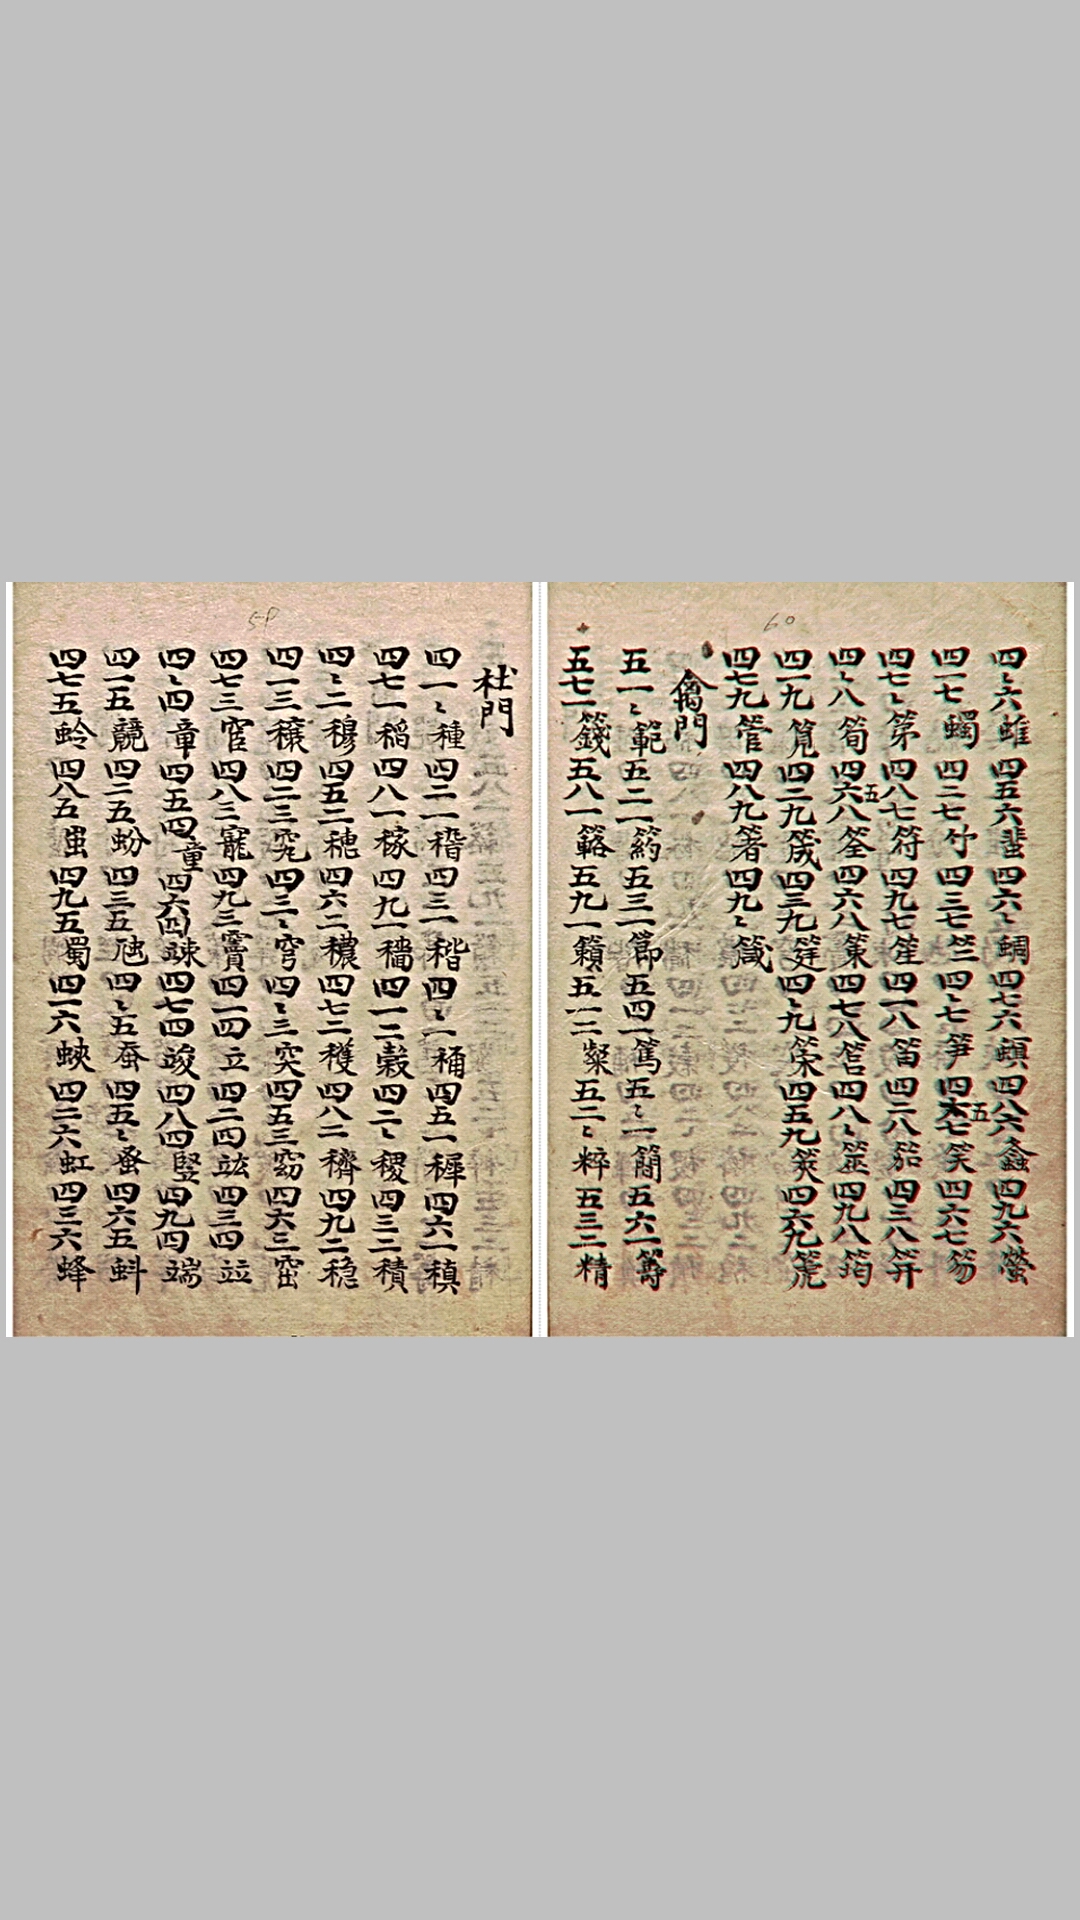 58
杜門
四一〻種四二一稭四三一稭四〻一桶四五一稺四六一稹
四七一稻四八一稼四九一穡四一二穀四二〻稷四三二積
四〻二穆四五二穂四六二穠四七二穫四八二穧四九二稳
四一三穰四二三究四三〻穹四〻三突四五三窈四六三窋
四七三窅四八三寵四九三竇四一四立四二四竑四三四竝
四〻四章四五四童四六四竦四七四竣四八四竪四九四端
四一五競四二五蚡四三五虺四〻五蚕四五〻蚤四六五蚪
四七五蛉四八五蚩四九五蜀四一六蛺四二六虹四三六蜂
60
四〻六蜼四五六蜚四六〻蜩四七六螾四八六螽四九六螢
四一七蠋四二七竹四三七竺四〻七笋四五七笑四六七笏
四七〻第四八七符四九七笙四一八笛四二八笳四三八笄
四〻八筍四五八筌四六八策四七八笤四八〻筮四九八筠
四一九筧四二九筬四三九筳四〻九筞四五九筴四六九箎
四七九管四八九箸四九〻箴
禽門
五一〻範五二一箹五三一節五四一篤五〻一簡五六一籌
五七一籛五八一簵五九一籟五一二粲五二〻粹五三二精